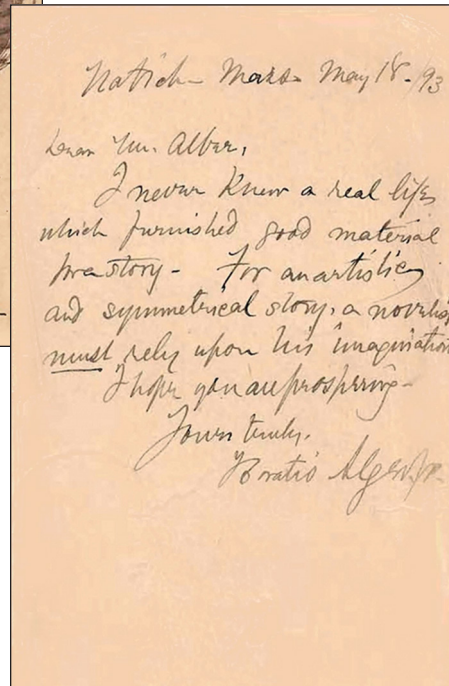 Natick - Mass - May 18. /93
Dear Mr. Alber,
I never knew a real life
which furnished good material
for a story - For an artistic
and symmetrical story, a novelist
must rely upon his imagination
I hope you are prospering -
Yours truly,
Horatio Alger, Jr.